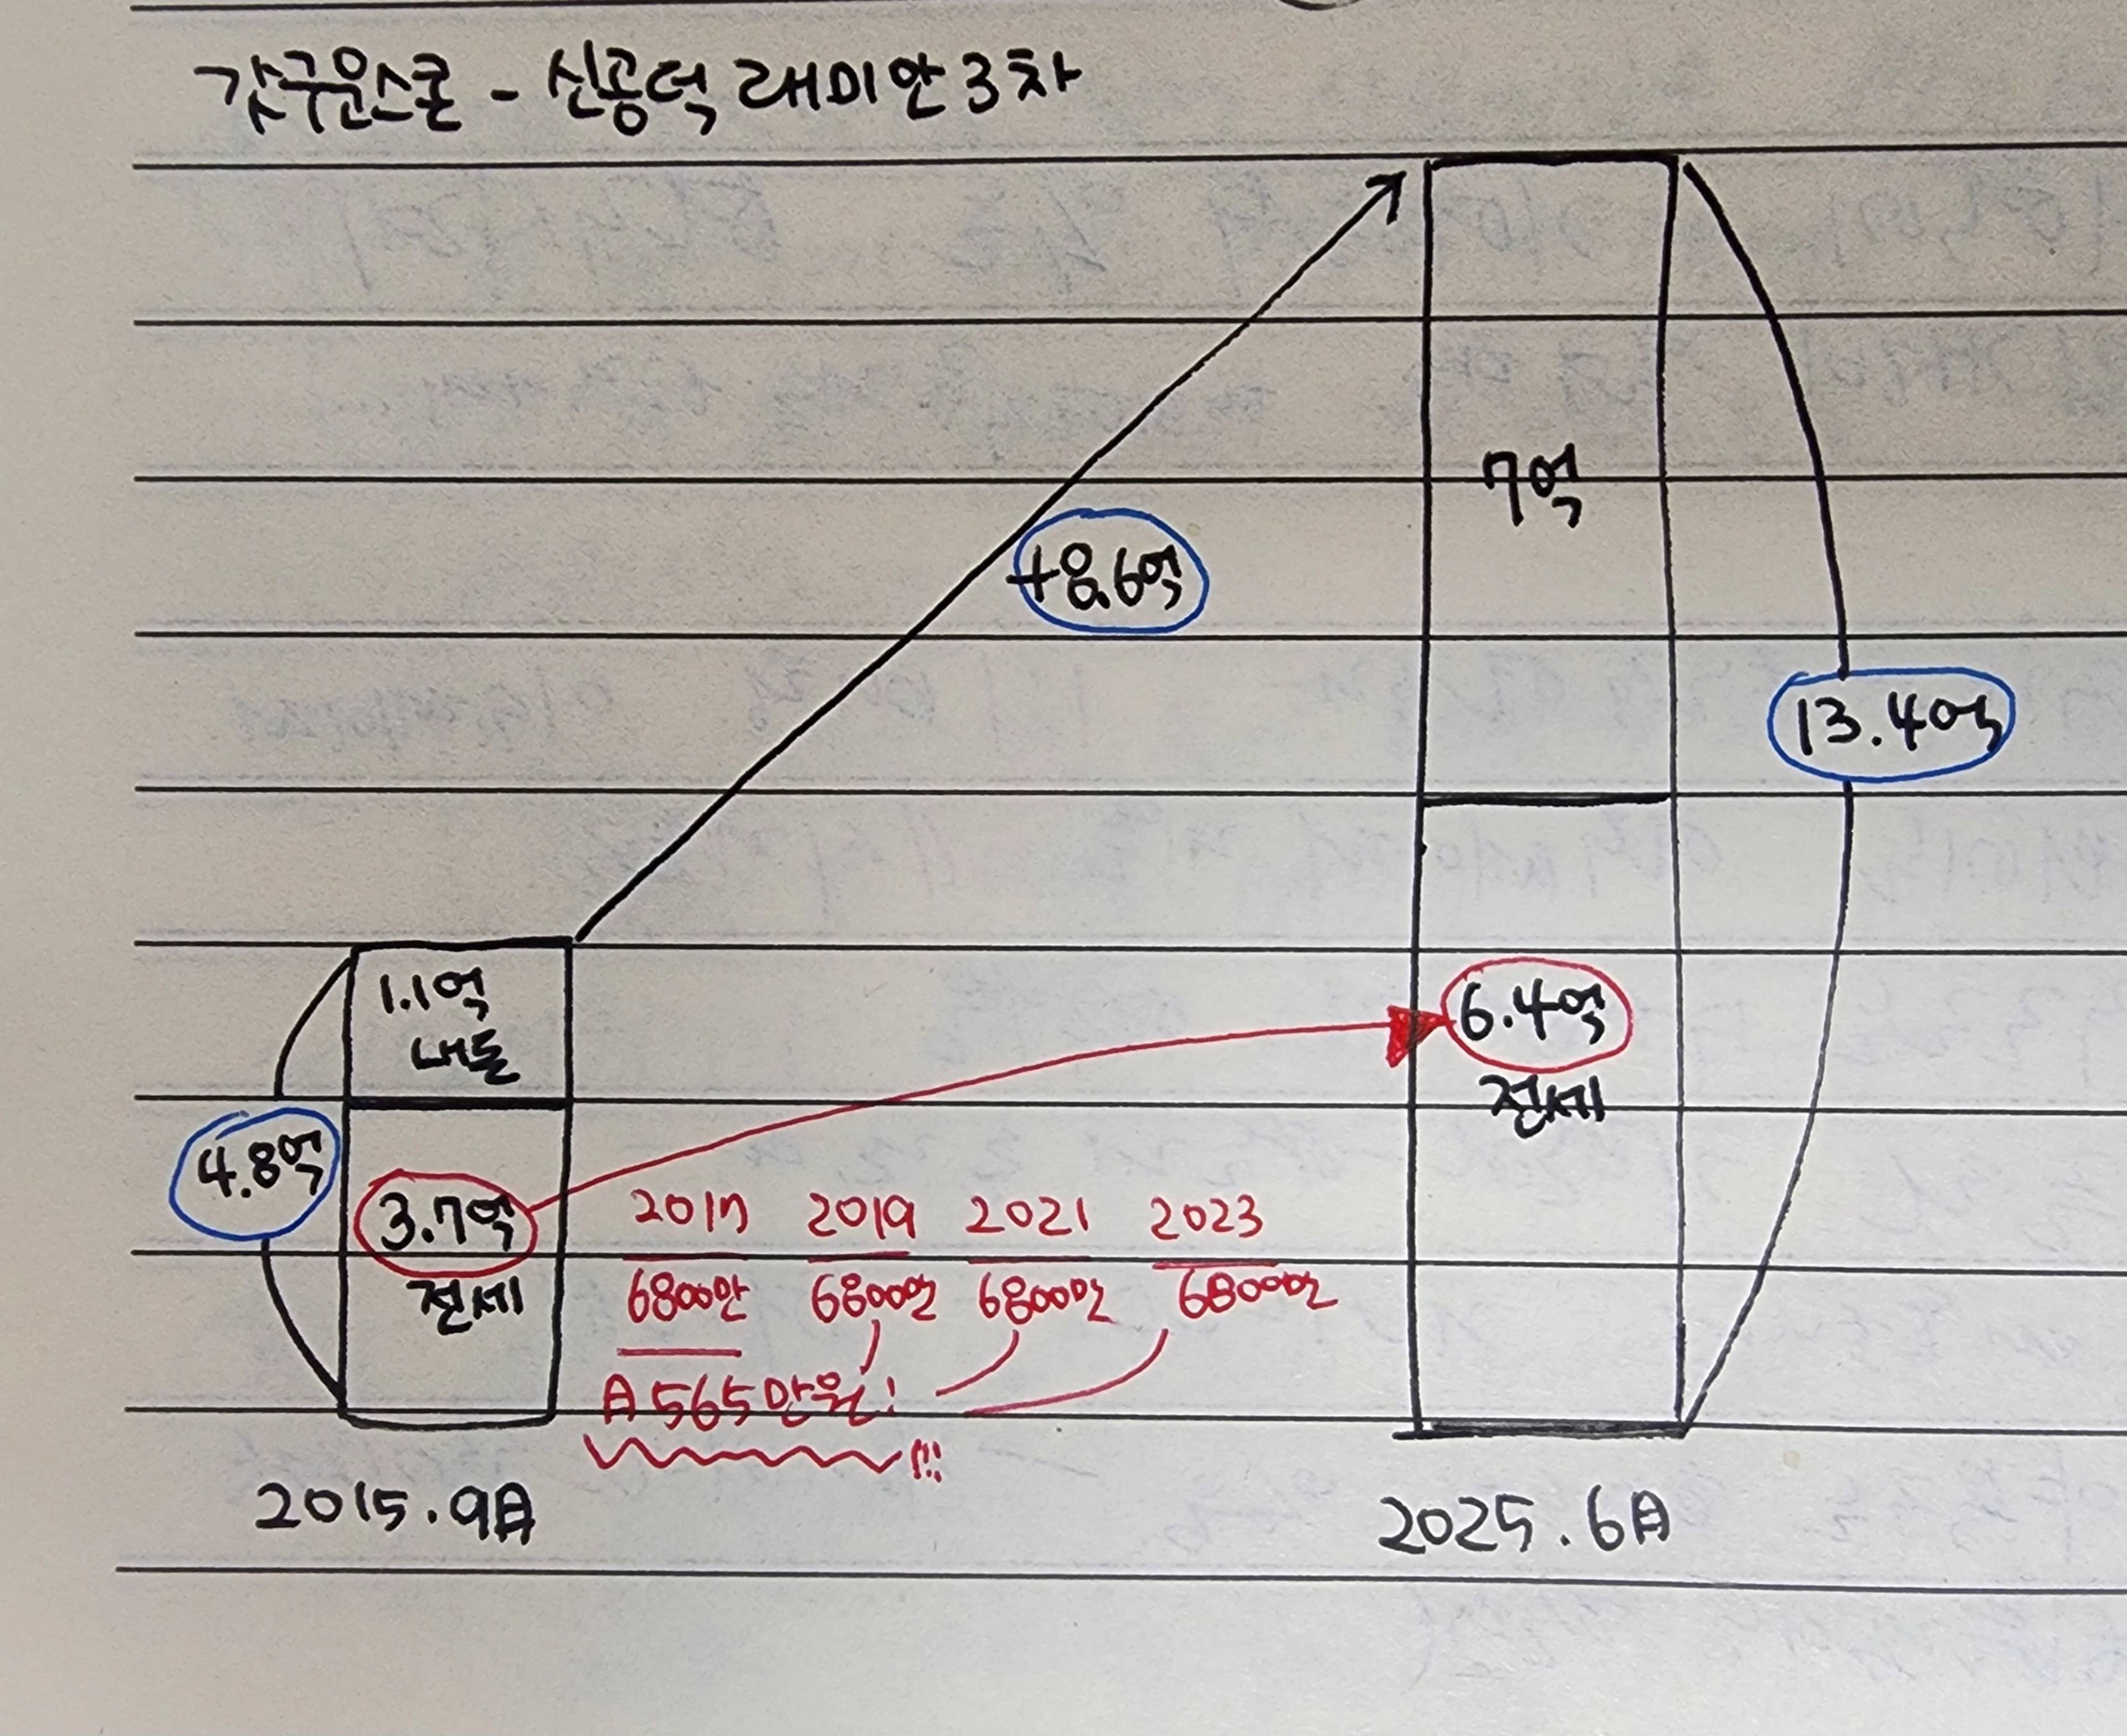 갓구운스콘 - 신공덕 래미안 3차
7억
+8.6억
13.4억
1.1억
내돈
6.4억
전세
4.8억
3.7억
전세
2017 2019 2021 2023
6800만 6800만 6800만 6800만
月 565만원!
!!!
2015.9月
2025.6月